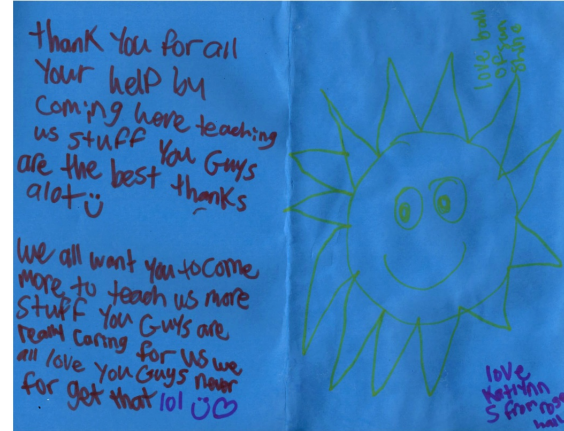 thank you for all
your help by
coming here teaching
us stuff you Guys
are the best thanks
alot
we all want you to come
more to teach us more
stuff you Guys are
really caring for us we
all love you Guys never
for get that lol
love
of sun
shine
love
Katlynn
S from rose